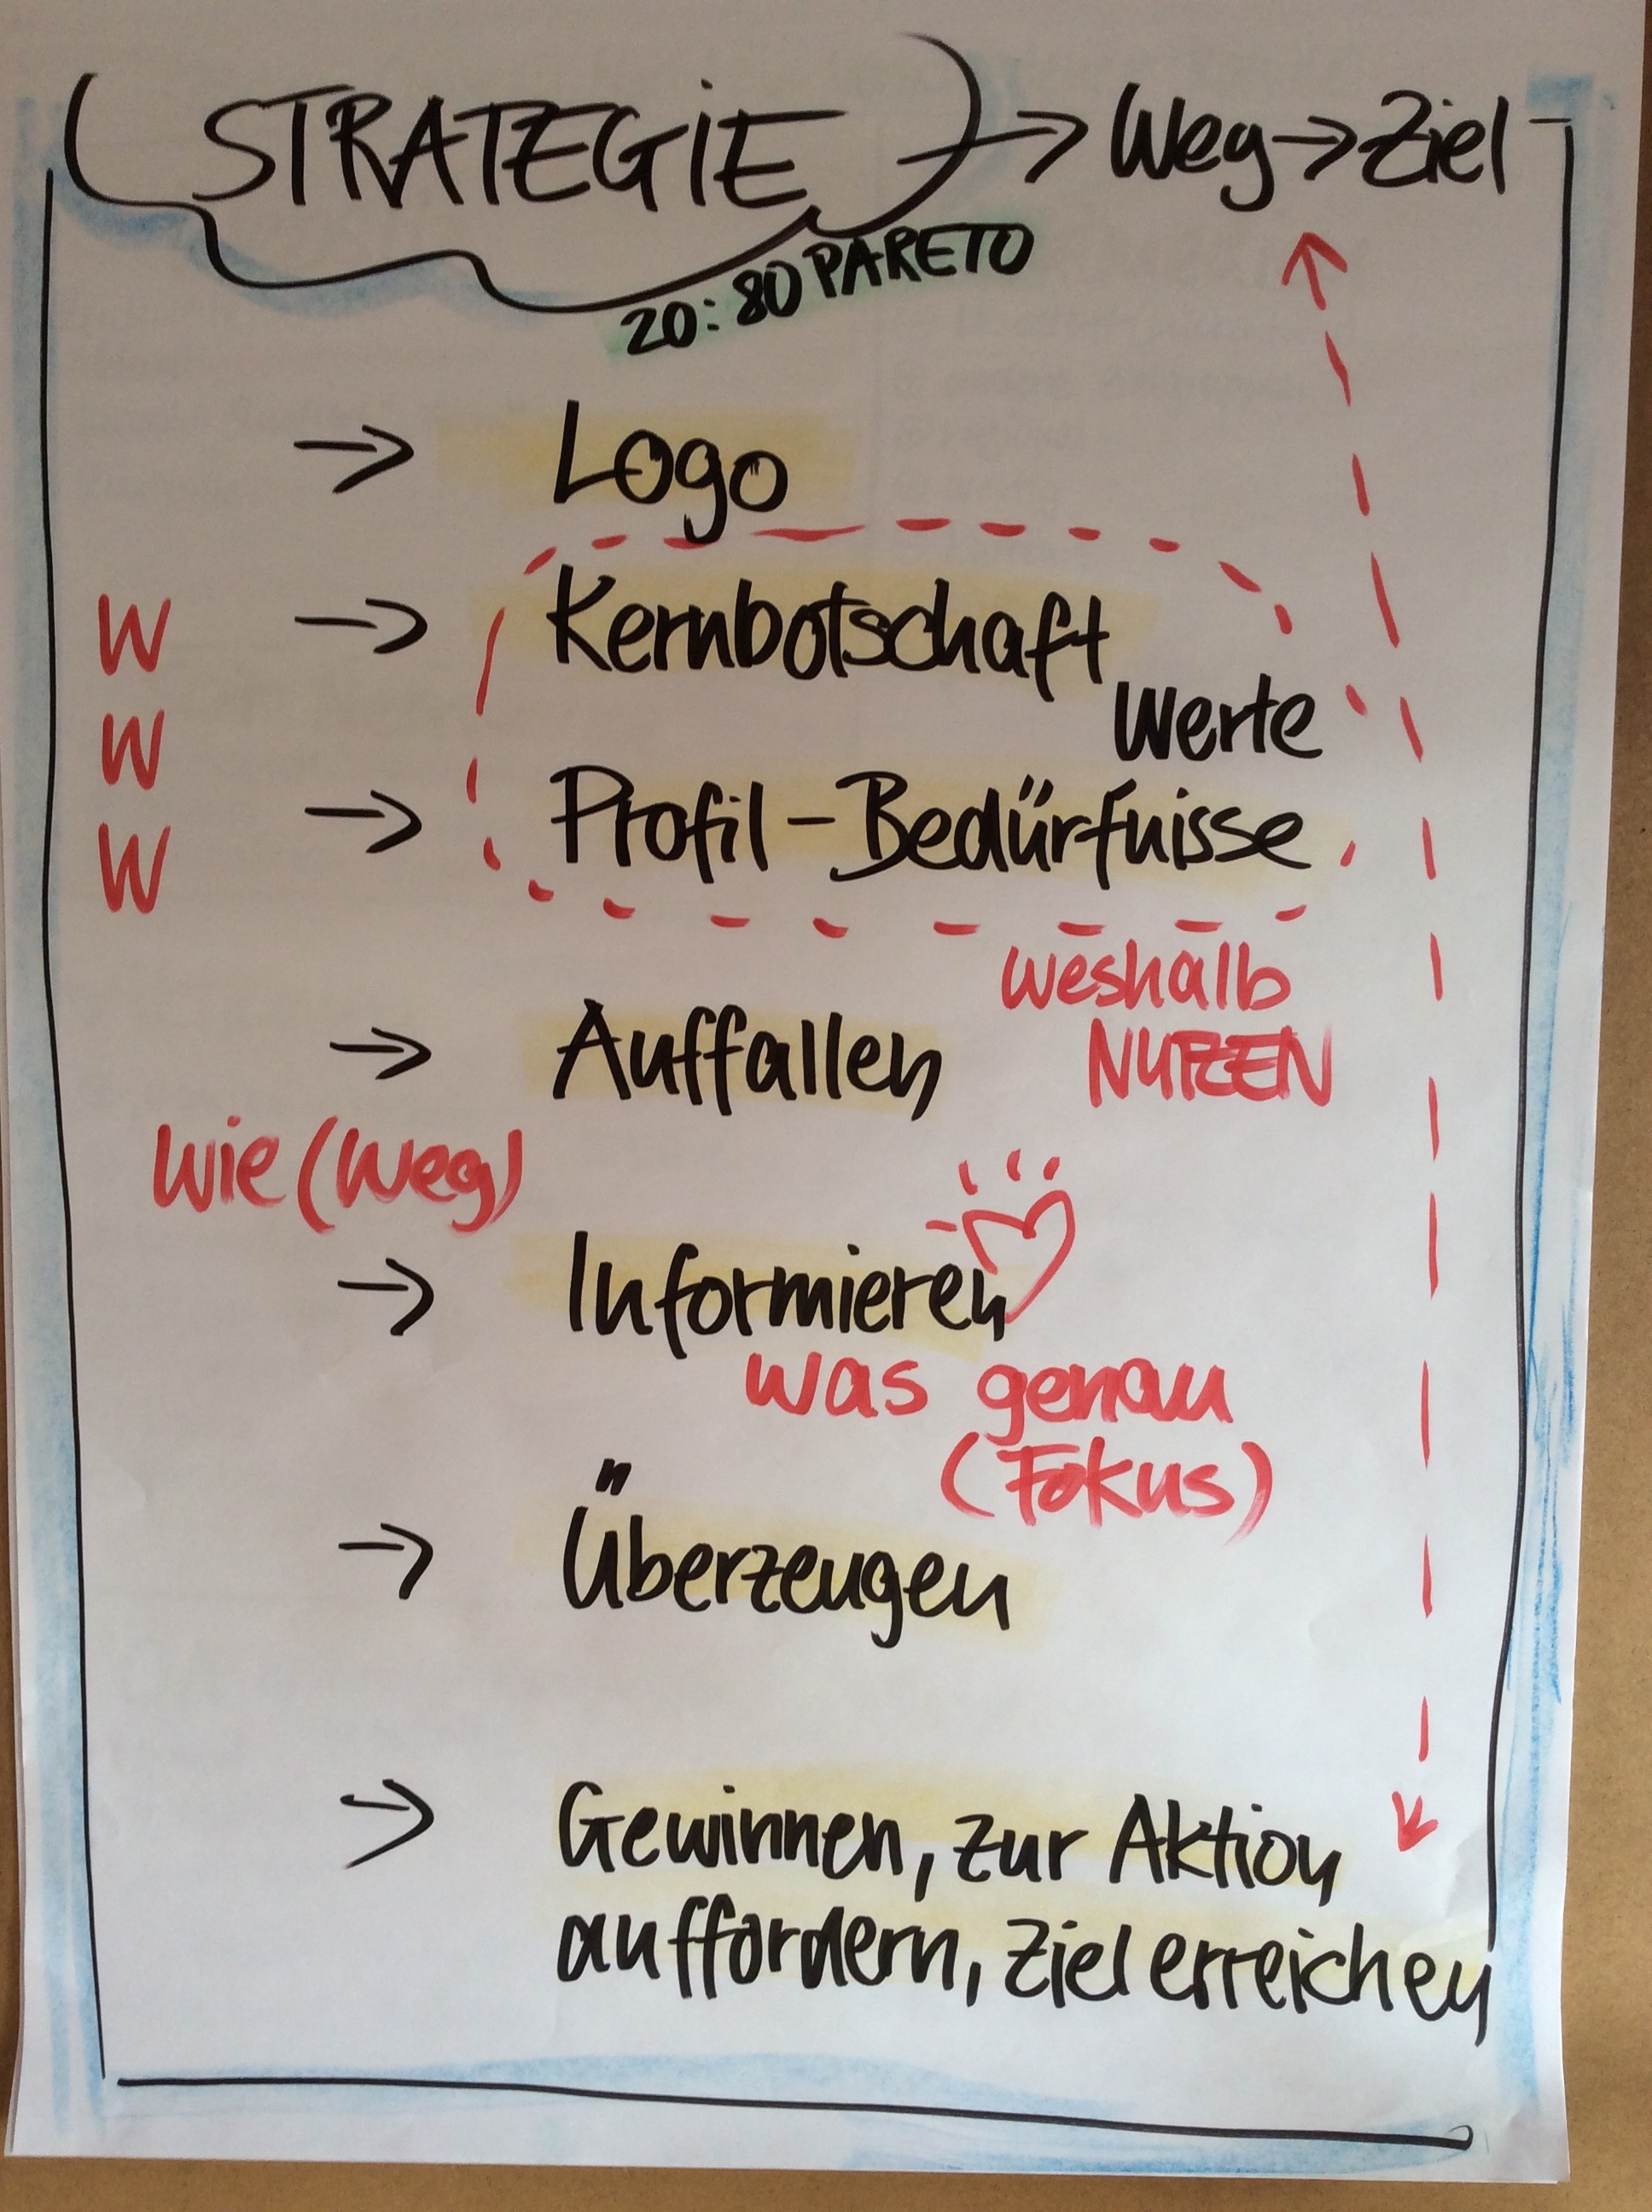 STRATEGIE → Weg → Ziel
20:80 PARETO
→ Logo
W → Kernbotschaft
W Werte
W → Profil - Bedürfnisse
weshalb
→ Auffallen NUTZEN
Wie (Weg)
→ Informieren
was genau
(Fokus)
→ Überzeugen
→ Gewinnen, zur Aktion
auffordern, Ziel erreichen